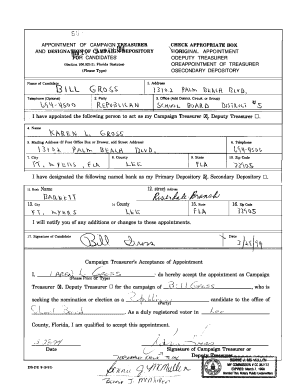 APPOINTMENT OF CAMPAIGN TREASURER
AND DESIGNATION OF CAMPAIGN DEPOSITORY
FOR CANDIDATES
(Section 106.021(1), Florida Statutes)
(Please Type)
CHECK APPROPRIATE BOX
ORIGINAL APPOINTMENT
DEPUTY TREASURER
REAPPOINTMENT OF TREASURER
SECONDARY DEPOSITORY
Name of Candidate
BILL GROSS
1. Address
13102 PALM BEACH BLVD.
Telephone (Optional)
694-4500
2. Party
REPUBLICAN
3. Office (Add District, Circuit, or Group)
SCHOOL BOARD DISTRICT #5
I have appointed the following person to act as my Campaign Treasurer Deputy Treasurer
4. Name
KAREN L. GROSS
5. Mailing Address (If Post Office Box or Drawer, add Street Address)
13102 PALM BEACH BLVD.
6. Telephone
694-4500
7. City
FT. MYERS, FLA
8. County
LEE
9. State
FLA
10. Zip Code
33905
I have designated the following named bank as my Primary Depository Secondary Depository
11. Bank Name
BARNETT
12. Street Address
Riverdale Branch
13. City
FT. MYERS
14. County
LEE
15. State
FLA
16. Zip Code
33905
I will notify you of any additions or changes to these appointments.
17. Signature of Candidate
Bill Gross
Date
Campaign Treasurer's Acceptance of Appointment
I, Karen L. Gross do hereby accept the appointment as Campaign
(Please Print or Type)
Treasurer Deputy Treasurer for the campaign of Bill Gross, who is
seeking the nomination or election as a Republican candidate to the office of
(Party)
School Board. As a duly registered voter in Lee
County, Florida, I am qualified to accept this appointment.
Date
Signature of Campaign Treasurer or
Deputy Treasurer